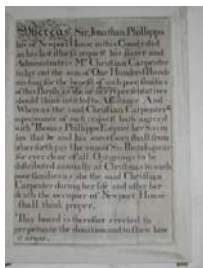 Whereas Sir Jonathan Phillipps
late of Newport House in this County did
in his last illness request his Sister and
Administratrix Mrs Christian Carpenter
to lay out the sum of One Hundred Pounds
for the benefit of such poor families
of this Parish, as she or her representatives
should think intitled to Assistance. And
Whereas the said Christian Carpenter in
pursuance of such request hath agreed
with Thomas Phillipps Esquire her Son in
law that he and his successors shall from
henceforth pay the sum of Six Pounds a year
for ever clear of all Outgoings to be
distributed annually at Christmas to such
poor families as she the said Christian
Carpenter during her life and after her
death the occupier of Newport House
shall think proper.
This board is therefore erected to
perpetuate the donation and to shew how
it arose.